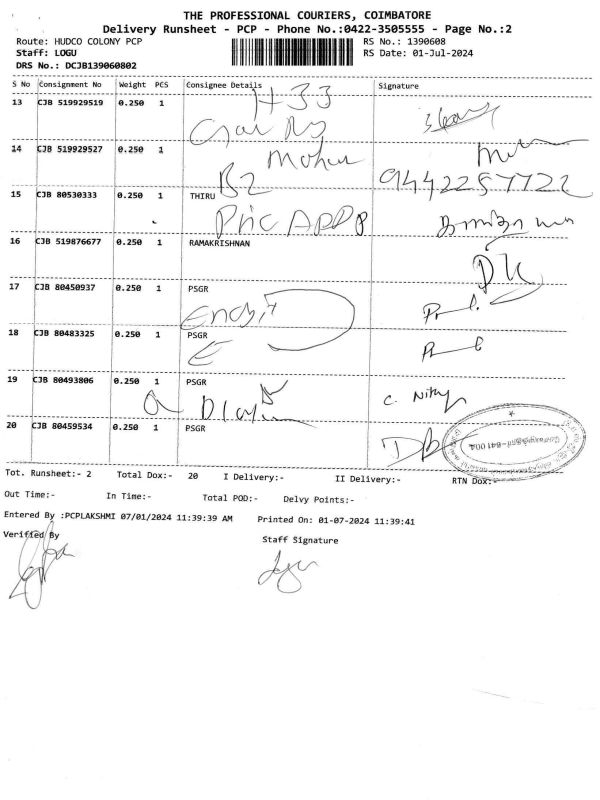 THE PROFESSIONAL COURIERS, COIMBATORE
Delivery Runsheet - PCP - Phone No.:0422-3505555 - Page No.:2
Route: HUDCO COLONY PCP RS No.: 1390608
Staff: LOGU RS Date: 01-Jul-2024
DRS No.: DCJB139060802
S No Consignment No Weight PCS Consignee Details Signature
13 CJB 519929519 0.250 1
14 CJB 519929527 0.250 1 Mohan
B2 9442257722
15 CJB 80530333 0.250 1 THIRU
16 CJB 519876677 0.250 1 RAMAKRISHNAN
17 CJB 80450937 0.250 1 PSGR
18 CJB 80483325 0.250 1 PSGR
E
19 CJB 80493806 0.250 1 PSGR
20 CJB 80459534 0.250 1 PSGR
Tot. Runsheet:- 2 Total Dox:- 20 I Delivery:- II Delivery:- RTN Dox:-
Out Time:- In Time:- Total POD:- Delvy Points:-
Entered By :PCPLAKSHMI 07/01/2024 11:39:39 AM Printed On: 01-07-2024 11:39:41
Verified By Staff Signature